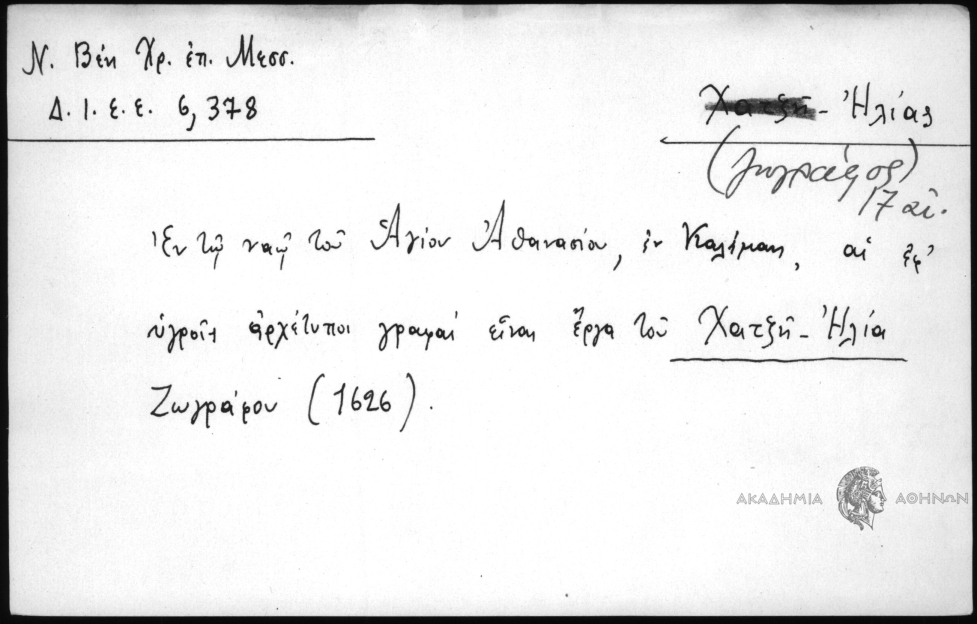 Ν. Βέη Χρ. ἐπ. Μεσσ.
Δ. Ι. Ε. Ε. 6, 378
Χατζῆ - Ἠλίας
(ζωγράφος)
17 αἰ.
Ἐν τῷ ναῷ τοῦ Ἁγίου Ἀθανασίου, ἐν Καλάμαις, αἱ ἐφ'
ὑγροῖς ἀρχέτυποι γραφαί εἶναι ἔργα τοῦ Χατζῆ - Ἠλία
Ζωγράφου (1626).
ΑΚΑΔΗΜΙΑ ΑΘΗΝΩΝ